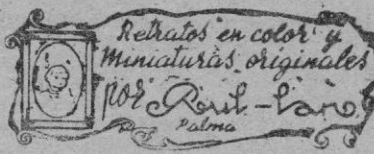 Retratos en color y
Miniaturas originales
por
Palma